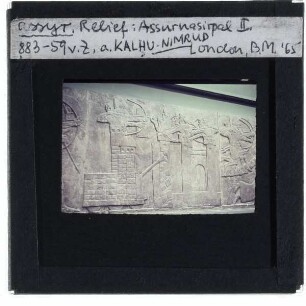 assyr. Relief: Assurnasirpal II.
883-59 v. Z, a. KALHU-NIMRUD
London, B.M. '65